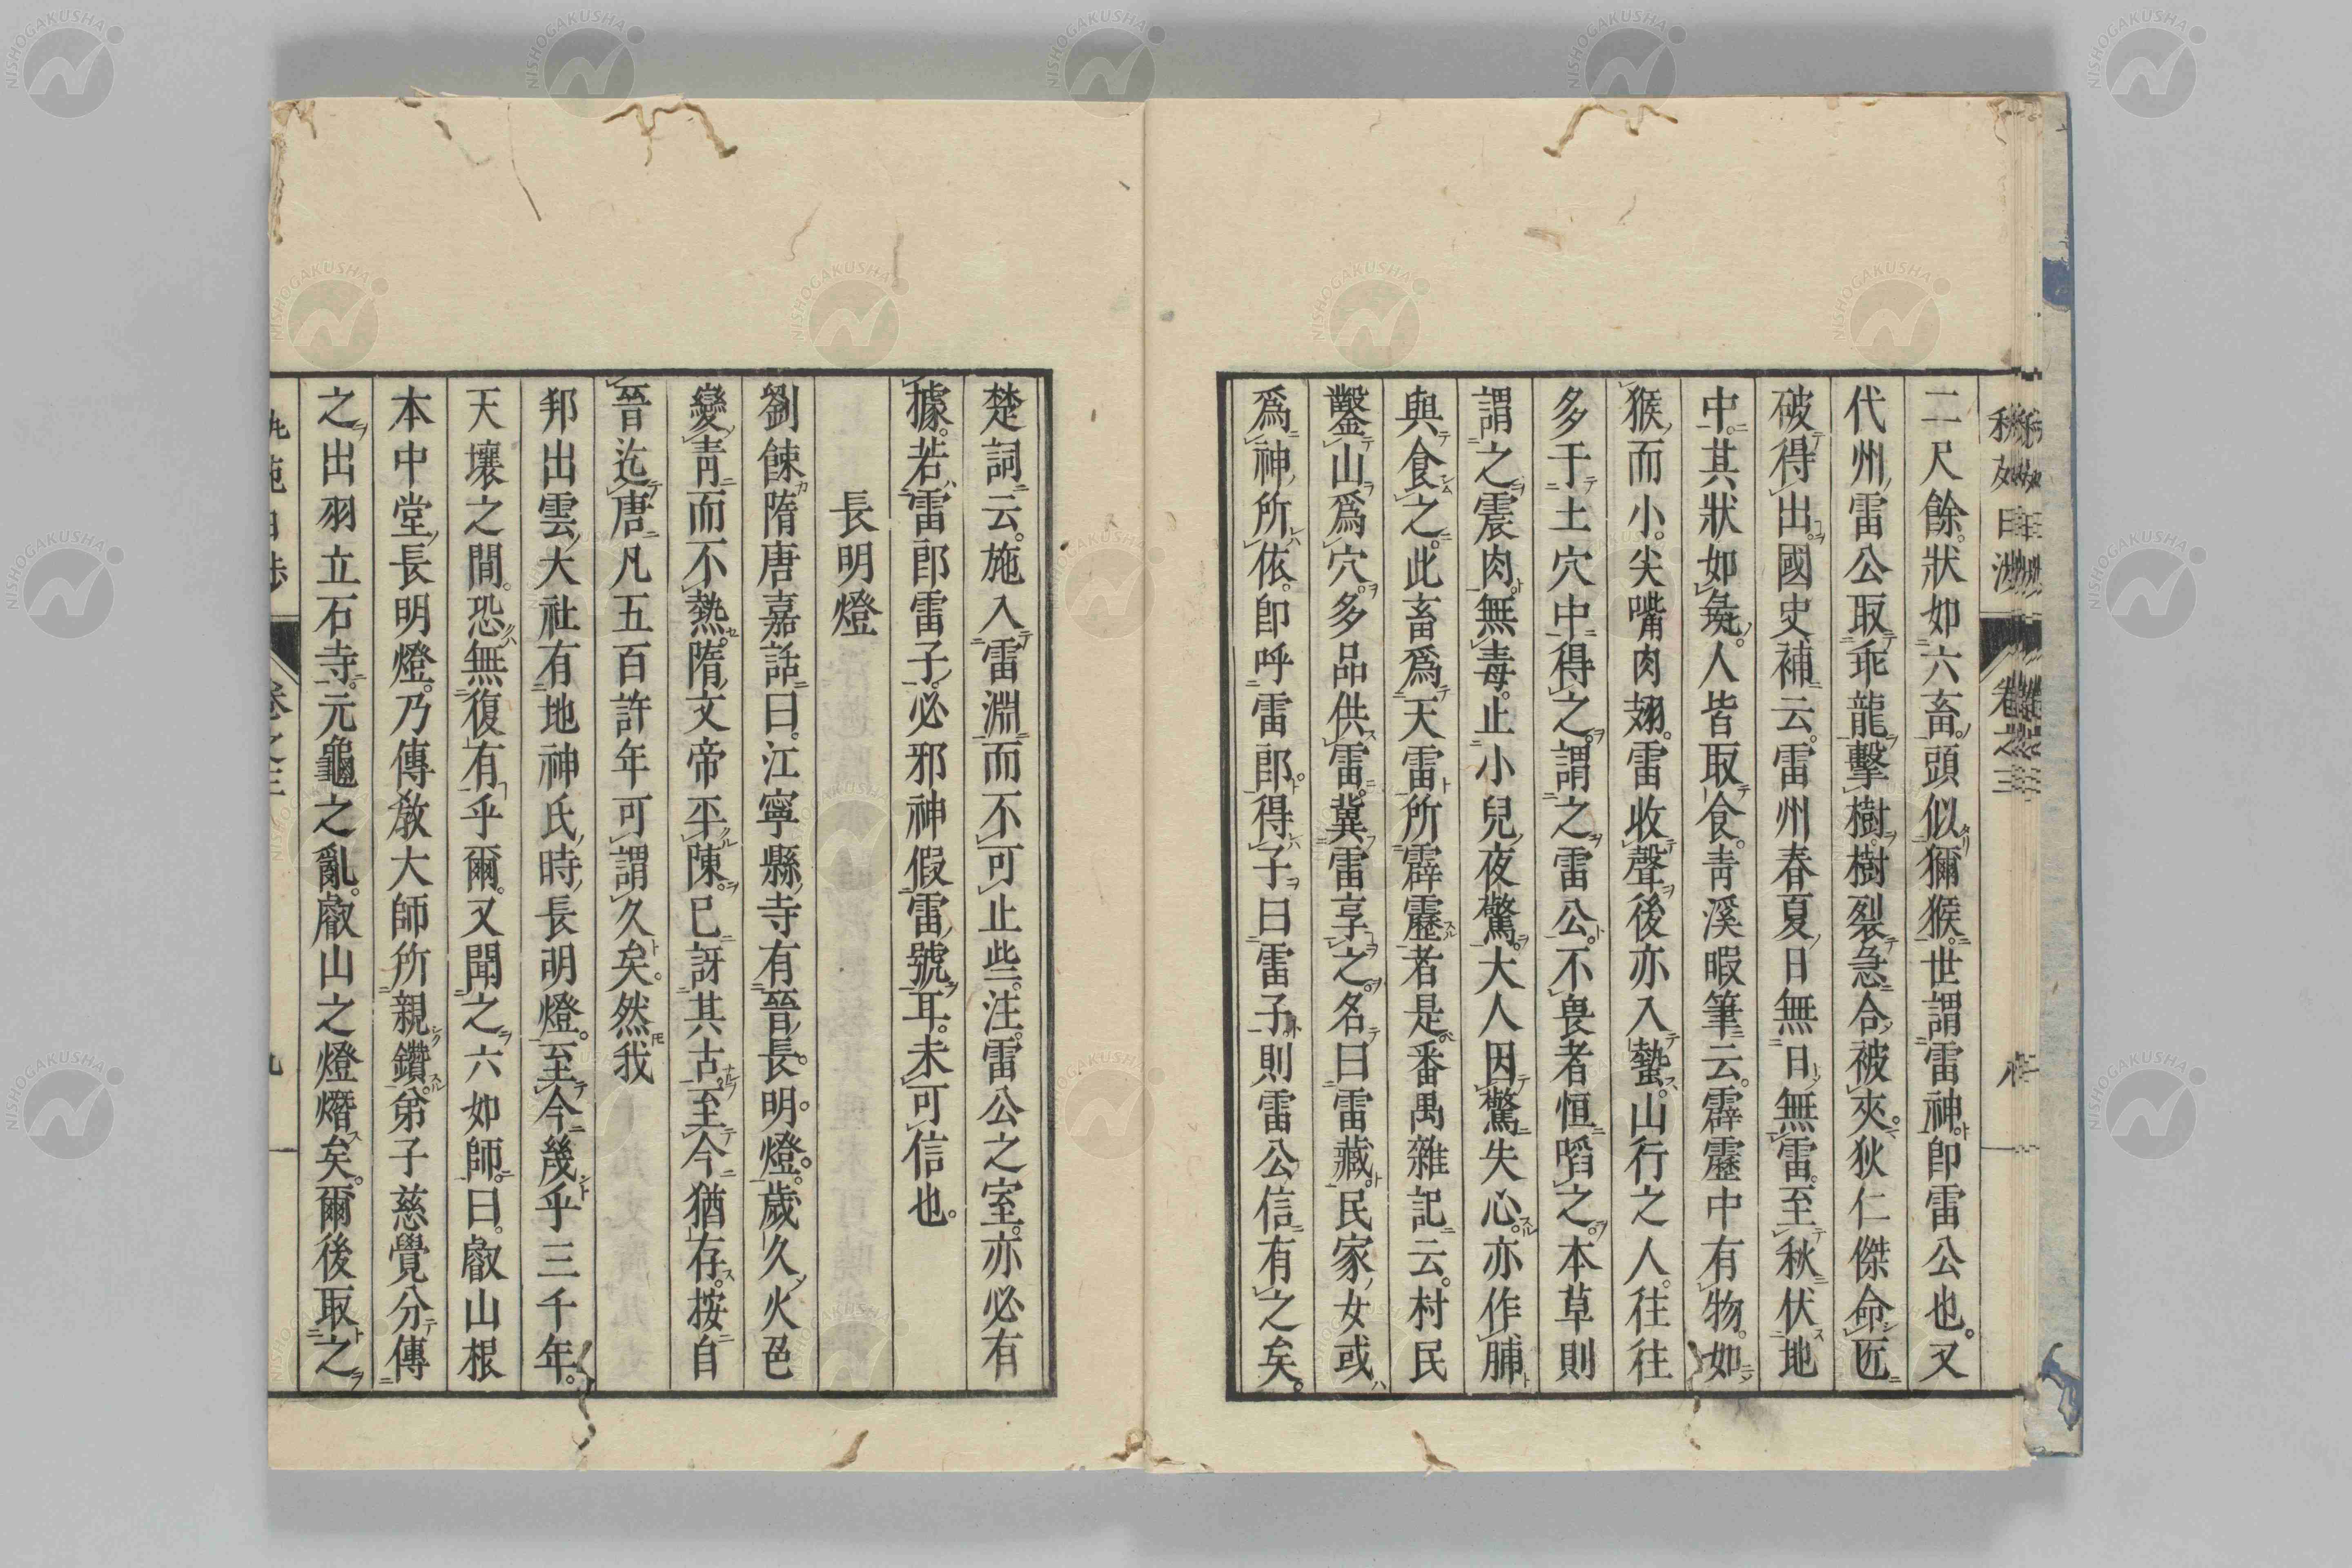 二尺餘。狀如六畜。頭似獼猴。世謂雷神。卽雷公也。又
代州雷公取乖龍擊樹。樹裂急合。被夾。狄仁傑命匠
破得出。國史補云。雷州春夏日無日無雷。至秋伏地
中。其狀如彘。人皆取食。靑溪暇筆云。霹靂中有物。如
猴而小。尖嘴肉翅。雷收聲後亦入蟄。山行之人。往往
多于土穴中得之。謂之雷公。不畏者恒啗之。本草則
謂之震肉。無毒。止小兒夜驚。大人因驚失心。亦作脯
與食之。此畜爲天雷所霹靂者是。番禺雜記云。村民
鑿山爲穴。多品供雷。冀雷享之。名曰雷藏。民家女或
爲神所依。卽呼雷郎。得子曰雷子。則雷公信有之矣。
楚詞云。施入雷淵而不可止些。注。雷公之室。亦必有
據。若雷郎雷子。必邪神假雷號耳。未可信也。
長明燈
劉餗隋唐嘉話曰。江寧縣寺有晉長明燈。歲久火色
變靑而不熱。隋文帝平陳。已訝其古。至今猶存。按自
晉迄唐。凡五百許年。可謂久矣。然我
邦出雲大社有地神氏時長明燈。至今幾乎三千年。
天壤之間。恐無復有乎爾。又聞之六如師。曰。叡山根
本中堂長明燈。乃傳敎大師所親鑽。弟子慈覺分傳
之出羽立石寺。元龜之亂。叡山之燈熸矣。爾後取之
卷之三